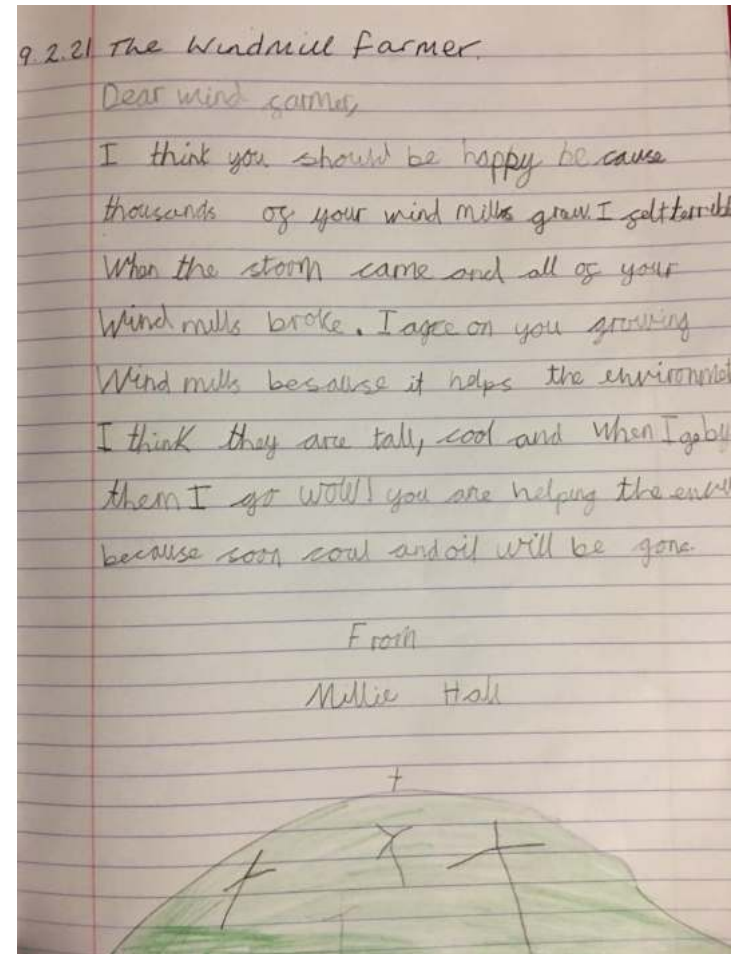 9.2.21 The Windmill Farmer.
Dear wind farmer,
I think you should be happy be cause
thousands of your wind mills grew. I felt terribl
When the storm came and all of your
Wind mills broke. I agee on you growing
Wind mills besause it helps the environmet
I think they are tall, cool and when I go by
them I go WOW! you are helping the
because soon coal and oil will be gone.
From
Millie Hall